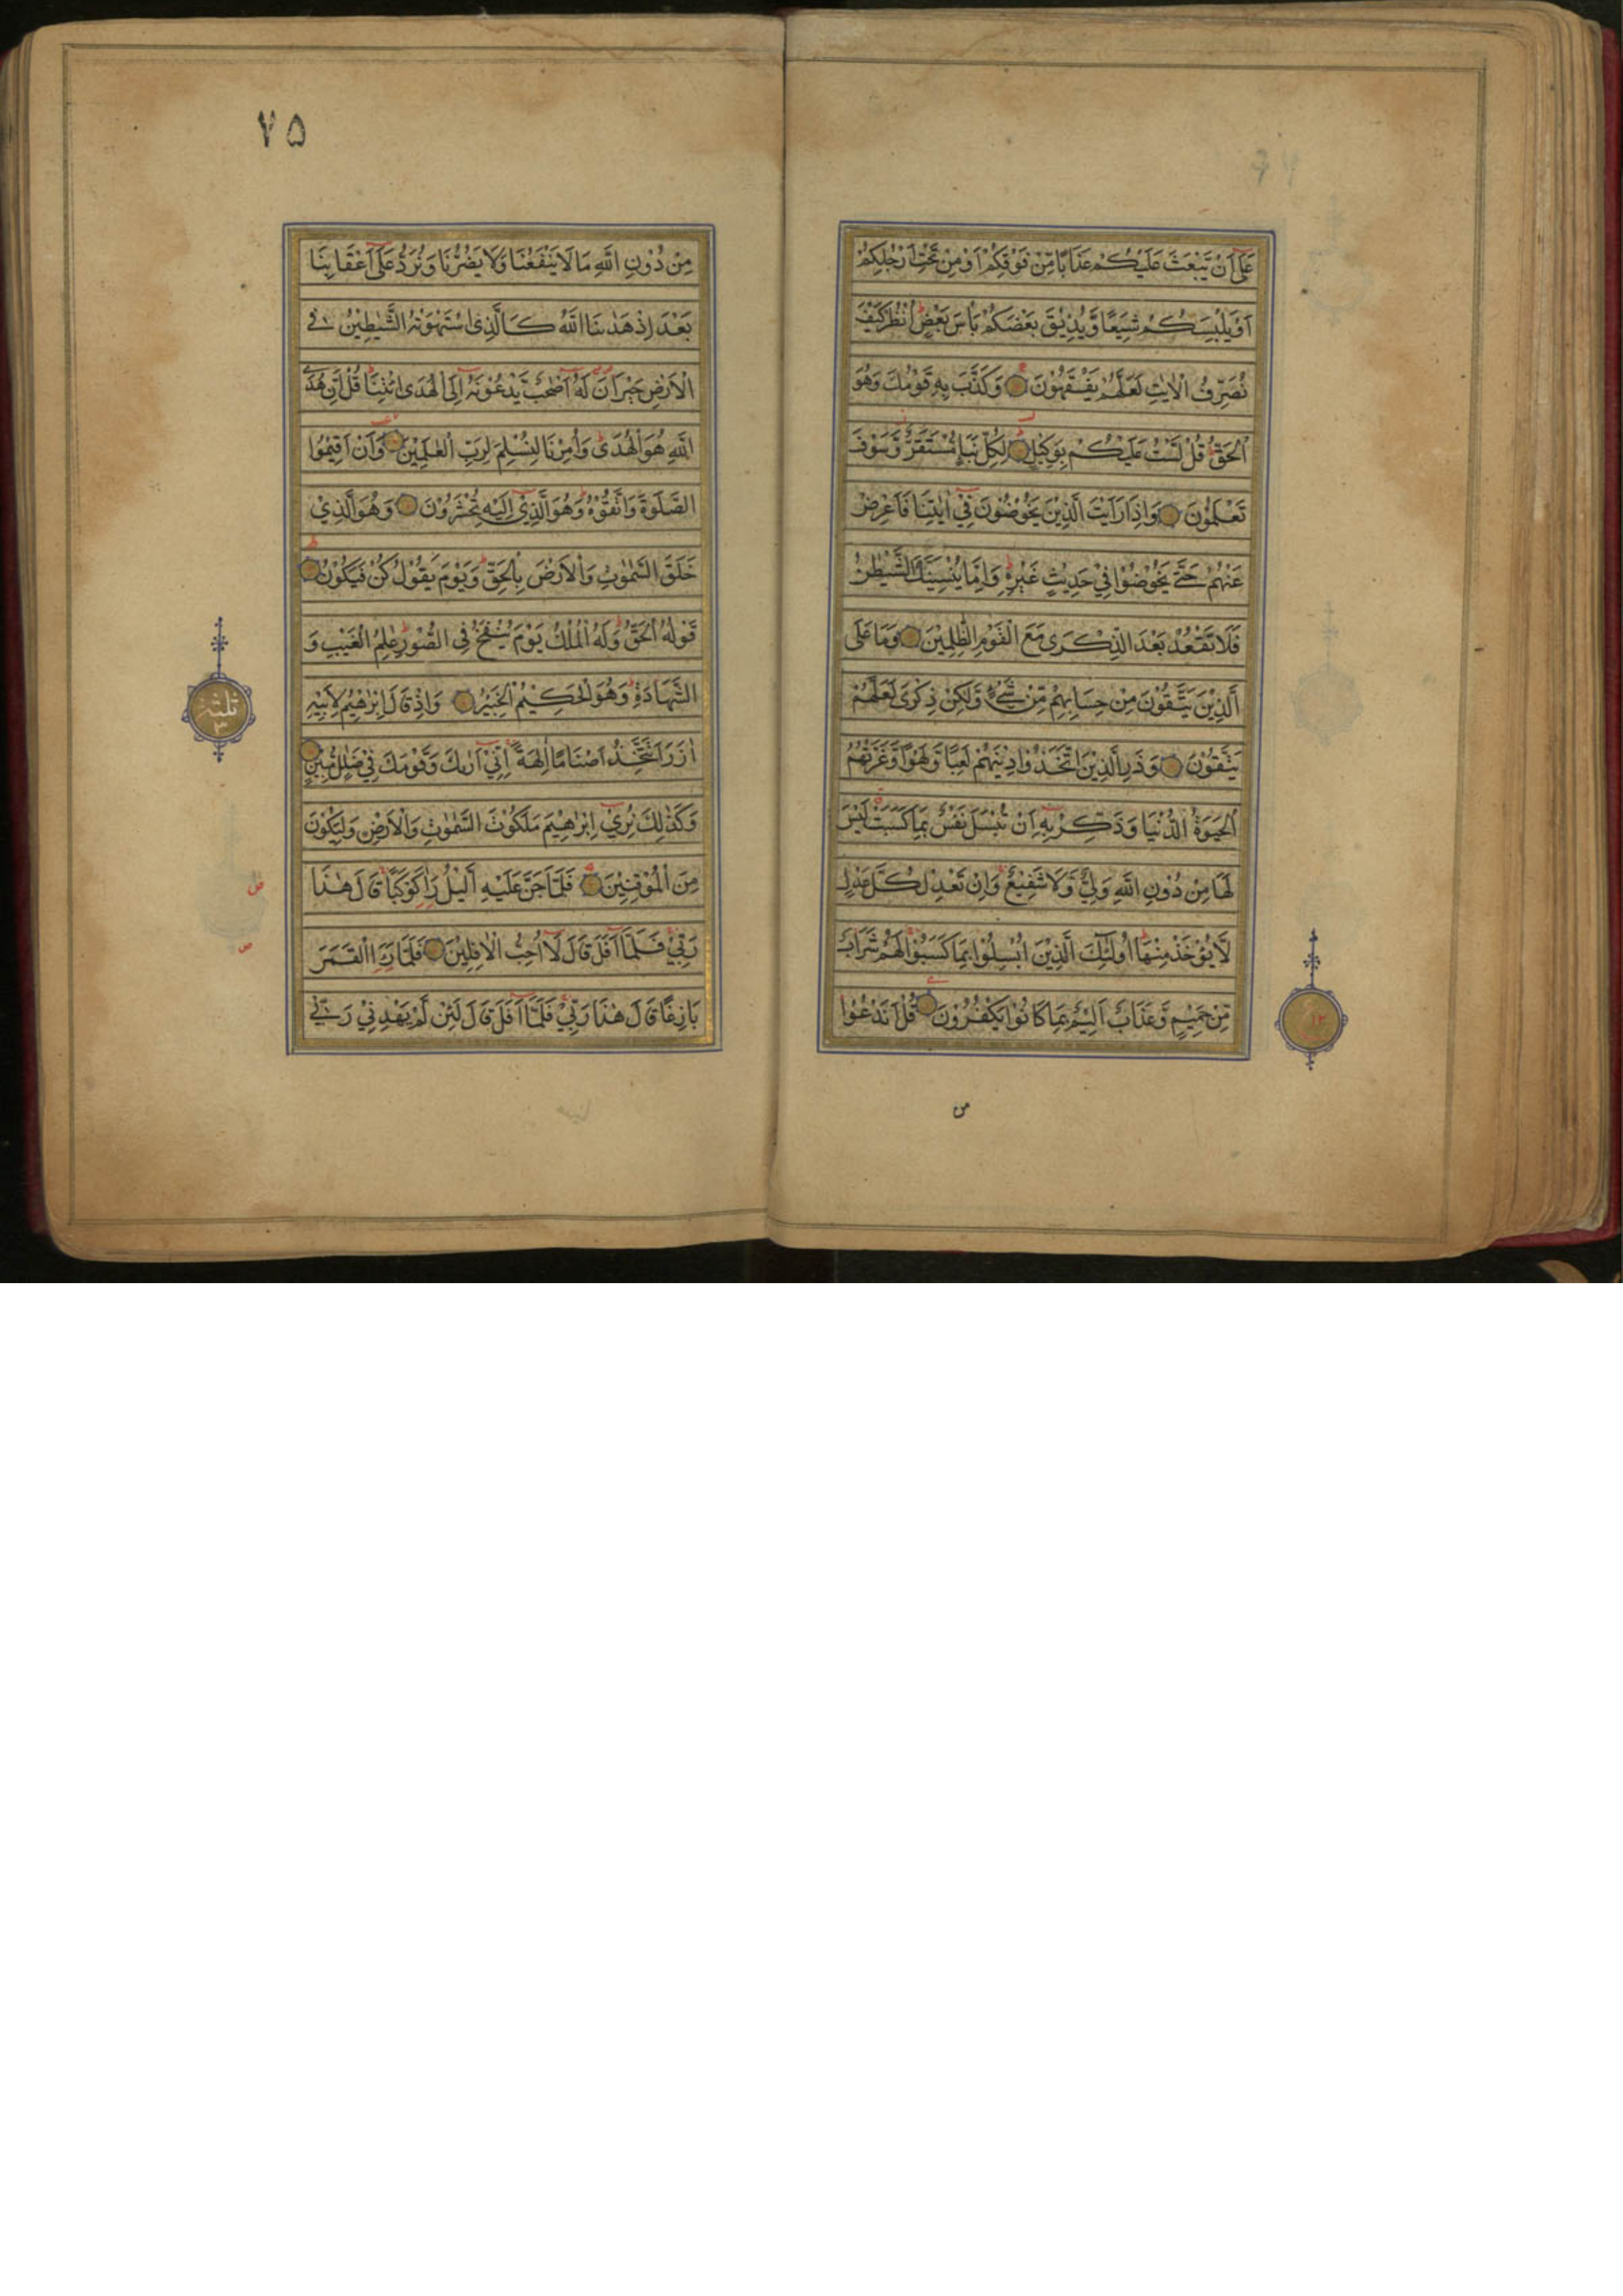 عَلٰٓى اَنْ يَّبْعَثَ عَلَيْكُمْ عَذَابًا مِّنْ فَوْقِكُمْ اَوْ مِنْ تَحْتِ اَرْجُلِكُمْ
اَوْ يَلْبِسَكُمْ شِيَعًا وَّيُذِيْقَ بَعْضَكُمْ بَاْسَ بَعْضٍ اُنْظُرْ كَيْفَ
نُصَرِّفُ الْاٰيٰتِ لَعَلَّهُمْ يَفْقَهُوْنَ وَكَذَّبَ بِهٖ قَوْمُكَ وَهُوَ
الْحَقُّ قُلْ لَّسْتُ عَلَيْكُمْ بِوَكِيْلٍ لِكُلِّ نَبَاٍ مُّسْتَقَرٌّ وَّسَوْفَ
تَعْلَمُوْنَ وَاِذَا رَاَيْتَ الَّذِيْنَ يَخُوْضُوْنَ فِيْٓ اٰيٰتِنَا فَاَعْرِضْ
عَنْهُمْ حَتّٰى يَخُوْضُوْا فِيْ حَدِيْثٍ غَيْرِهٖ وَاِمَّا يُنْسِيَنَّكَ الشَّيْطٰنُ
فَلَا تَقْعُدْ بَعْدَ الذِّكْرٰى مَعَ الْقَوْمِ الظّٰلِمِيْنَ وَمَا عَلَى
الَّذِيْنَ يَتَّقُوْنَ مِنْ حِسَابِهِمْ مِّنْ شَيْءٍ وَّلٰكِنْ ذِكْرٰى لَعَلَّهُمْ
يَتَّقُوْنَ وَذَرِ الَّذِيْنَ اتَّخَذُوْا دِيْنَهُمْ لَعِبًا وَّلَهْوًا وَّغَرَّتْهُمُ
الْحَيٰوةُ الدُّنْيَا وَذَكِّرْ بِهٖٓ اَنْ تُبْسَلَ نَفْسٌ بِمَا كَسَبَتْ لَيْسَ
لَهَا مِنْ دُوْنِ اللّٰهِ وَلِيٌّ وَّلَا شَفِيْعٌ وَاِنْ تَعْدِلْ كُلَّ عَدْلٍ
لَّا يُؤْخَذْ مِنْهَا اُولٰٓئِكَ الَّذِيْنَ اُبْسِلُوْا بِمَا كَسَبُوْا لَهُمْ شَرَابٌ
مِّنْ حَمِيْمٍ وَّعَذَابٌ اَلِيْمٌ بِمَا كَانُوْا يَكْفُرُوْنَ قُلْ اَنَدْعُوْا
١٢
من
٧٥
مِنْ دُوْنِ اللّٰهِ مَا لَا يَنْفَعُنَا وَلَا يَضُرُّنَا وَنُرَدُّ عَلٰٓى اَعْقَابِنَا
بَعْدَ اِذْ هَدٰىنَا اللّٰهُ كَالَّذِى اسْتَهْوَتْهُ الشَّيٰطِيْنُ فِى
الْاَرْضِ حَيْرَانَ لَهٗٓ اَصْحٰبٌ يَّدْعُوْنَهٗٓ اِلَى الْهُدَى ائْتِنَا قُلْ اِنَّ هُدَى
اللّٰهِ هُوَ الْهُدٰى وَاُمِرْنَا لِنُسْلِمَ لِرَبِّ الْعٰلَمِيْنَ وَاَنْ اَقِيْمُوا
الصَّلٰوةَ وَاتَّقُوْهُ وَهُوَ الَّذِيْٓ اِلَيْهِ تُحْشَرُوْنَ وَهُوَ الَّذِيْ
خَلَقَ السَّمٰوٰتِ وَالْاَرْضَ بِالْحَقِّ وَيَوْمَ يَقُوْلُ كُنْ فَيَكُوْنُ
قَوْلُهُ الْحَقُّ وَلَهُ الْمُلْكُ يَوْمَ يُنْفَخُ فِى الصُّوْرِ عٰلِمُ الْغَيْبِ وَ
الشَّهَادَةِ وَهُوَ الْحَكِيْمُ الْخَبِيْرُ وَاِذْ قَالَ اِبْرٰهِيْمُ لِاَبِيْهِ
اٰزَرَ اَتَتَّخِذُ اَصْنَامًا اٰلِهَةً اِنِّيْٓ اَرٰىكَ وَقَوْمَكَ فِيْ ضَلٰلٍ مُّبِيْنٍ
وَكَذٰلِكَ نُرِيْٓ اِبْرٰهِيْمَ مَلَكُوْتَ السَّمٰوٰتِ وَالْاَرْضِ وَلِيَكُوْنَ
مِنَ الْمُوْقِنِيْنَ فَلَمَّا جَنَّ عَلَيْهِ الَّيْلُ رَاٰ كَوْكَبًا قَالَ هٰذَا
رَبِّيْ فَلَمَّآ اَفَلَ قَالَ لَآ اُحِبُّ الْاٰفِلِيْنَ فَلَمَّا رَاَ الْقَمَرَ
بَازِغًا قَالَ هٰذَا رَبِّيْ فَلَمَّآ اَفَلَ قَالَ لَئِنْ لَّمْ يَهْدِنِيْ رَبِّيْ
ثلثة
٣
ص
ص